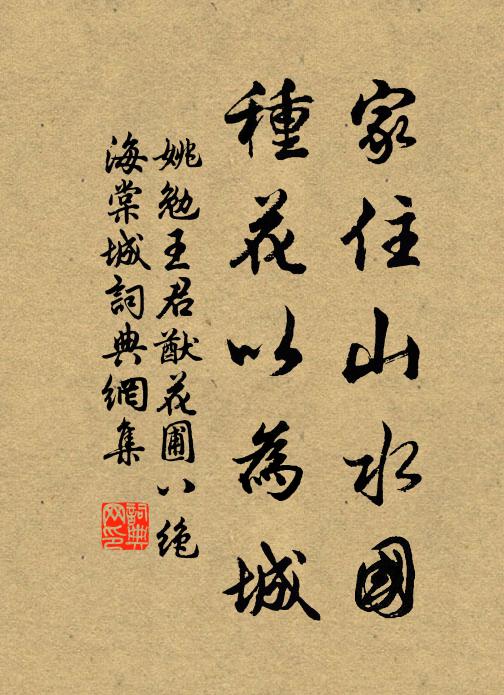 家住山水國
種花以為城
姚勉王君猷花圃八絶
海棠城詞典網集
詞典網印